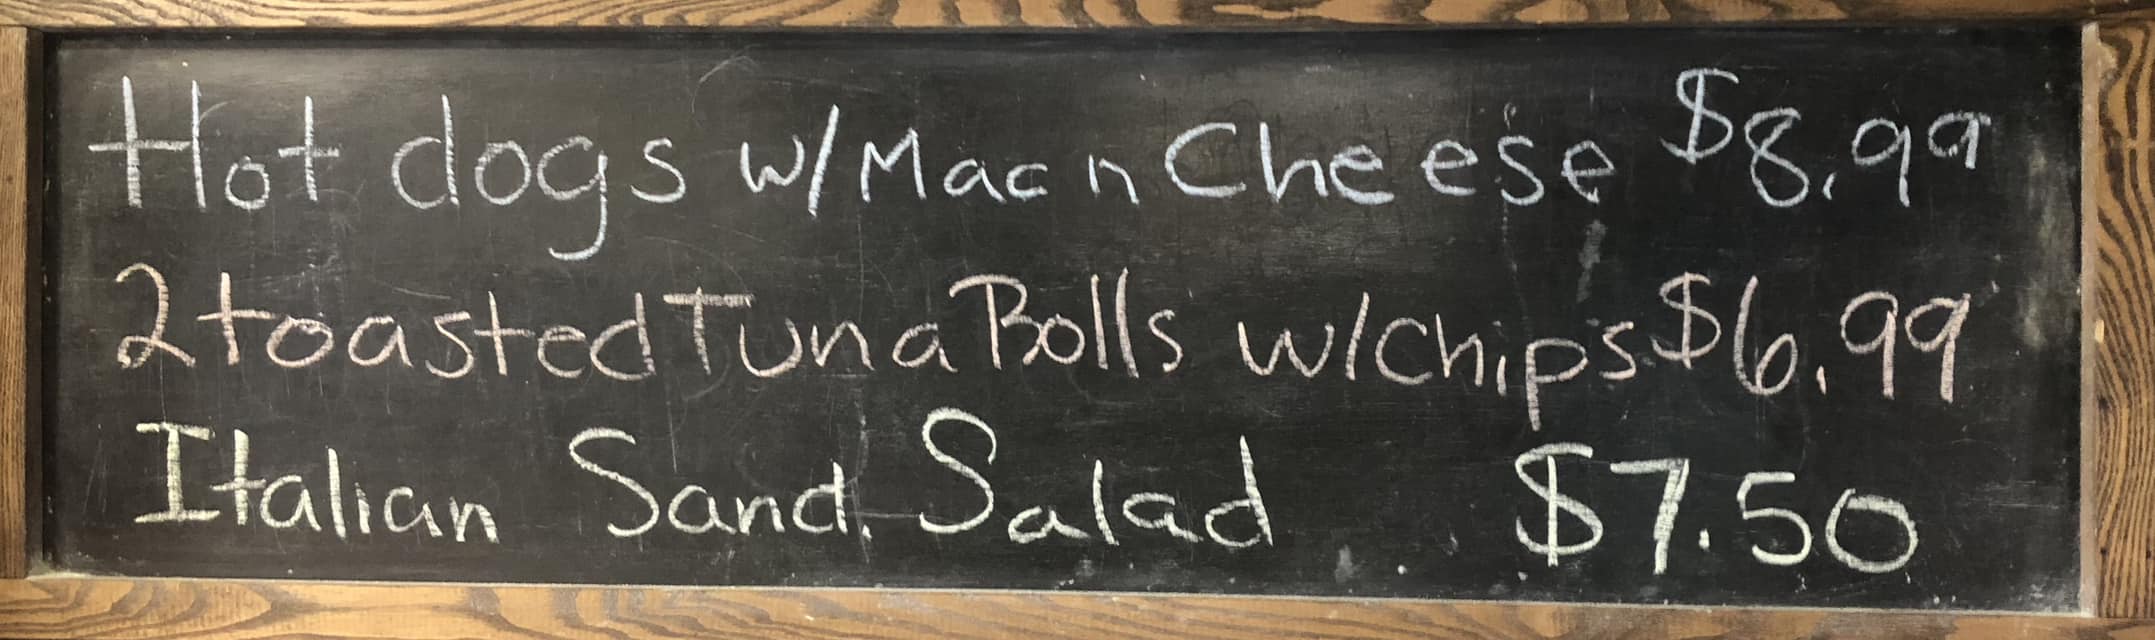 Hot dogs w/Mac n Cheese $8.99
2 toasted Tuna Rolls w/chips $6.99
Italian Sand. Salad $7.50